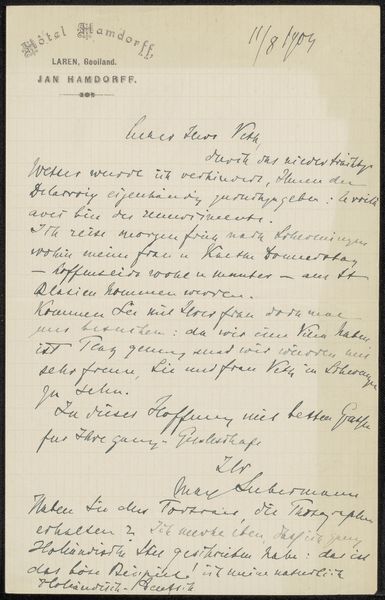 Hôtel Hamdorff,
LAREN, Gooiland.
JAN HAMDORFF.
11/8 1904
Lieber Herr Veth,
durch das niederträchtige
Wetter wurde ich verhindert, Ihnen den
Delacroix eigenhändig zurückzugeben: le voilà
avec bien des remerciments.
Ich reise morgen früh nach Scheveningen
wohin meine Frau u Kaethe Donnerstag
— hoffentlich wohl u munter — aus St
Blasien kommen werden.
Kommen Sie mit Ihrer Frau doch mal
uns besuchen: da wir eine Villa haben,
ist Platz genug und wir werden uns
sehr freuen, Sie und Frau Veth in Scheveningen
zu sehn.
In dieser Hoffnung mit besten Grüßen
für Ihre ganze Gesellschaft
Ihr
Max Liebermann
Haben Sie die Photographien
erhalten? Ich merke eben, daß ich ganz
Holländische geschrieben habe: das ist
das böse Beispiel! ich meine natürlich
Holländisch-Deutsch